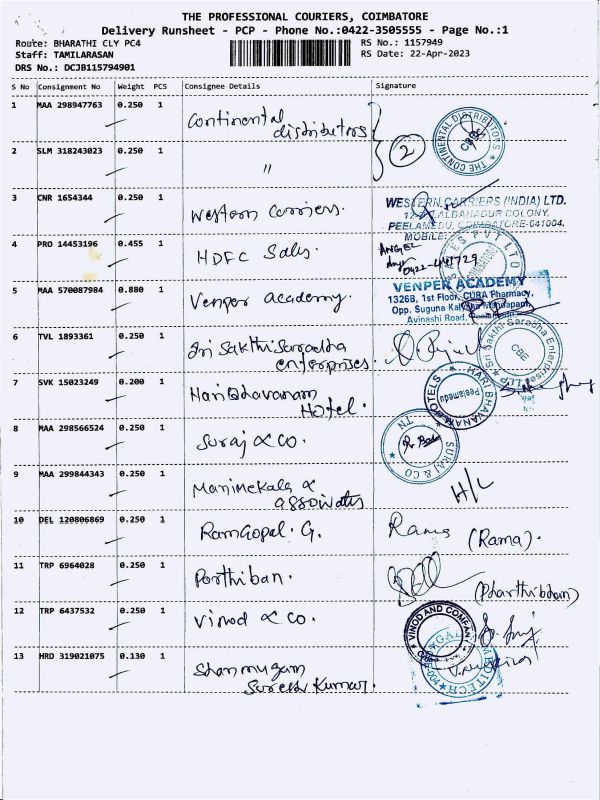 THE PROFESSIONAL COURIERS, COIMBATORE
Delivery Runsheet - PCP - Phone No.:0422-3505555 - Page No.:1
Route: BHARATHI CLY PC4
RS No.: 1157949
Staff: TAMILARASAN
RS Date: 22-Apr-2023
DRS No.: DCJB115794901
S No Consignment No Weight PCS Consignee Details Signature
1 MAA 298947763 0.250 1 Continental
distributors
2
THE CONTINENTAL DISTRIBUTORS
CBE
2 SLM 318243023 0.250 1 "
3 CNR 1654344 0.250 1 Western Carriers.
WESTERN CARRIERS (INDIA) LTD.
LALBAHADUR COLONY,
PEELAMEDU, COIMBATORE-641004.
MOBILE:
4 PRO 14453196 0.455 1 HDFC Sales.
ANGEL
0422-4417729
SALES PVT LTD
5 MAA 570087984 0.880 1 Venper Academy.
VENPER ACADEMY
1326B, 1st Floor, CURA Pharmacy,
Opp. Suguna Kalyana Mandapam,
Avinashi Road,
6 TVL 1893361 0.250 1 Sri Sakthi Saradha
enterprises.
Sri Sakthi Saradha Enterprises LLP
CBE
7 SVK 15023249 0.200 1 Hari Bhavanam
Hotel.
HARI BHAVANAM HOTELS
Peelamedu
8 MAA 298566524 0.250 1 Suraj & Co.
SURAJ & CO
TN
9 MAA 299844343 0.250 1 Manimekala &
associates
H/L
10 DEL 120806869 0.250 1 RamGopal. G.
Rama (Rama).
11 TRP 6964028 0.250 1 Parthiban.
(Pharthibdham)
12 TRP 6437532 0.250 1 Vinod & Co.
VINOD AND COMPANY
13 HRD 319021075 0.130 1 Shanmugam
Suresh Kumar.